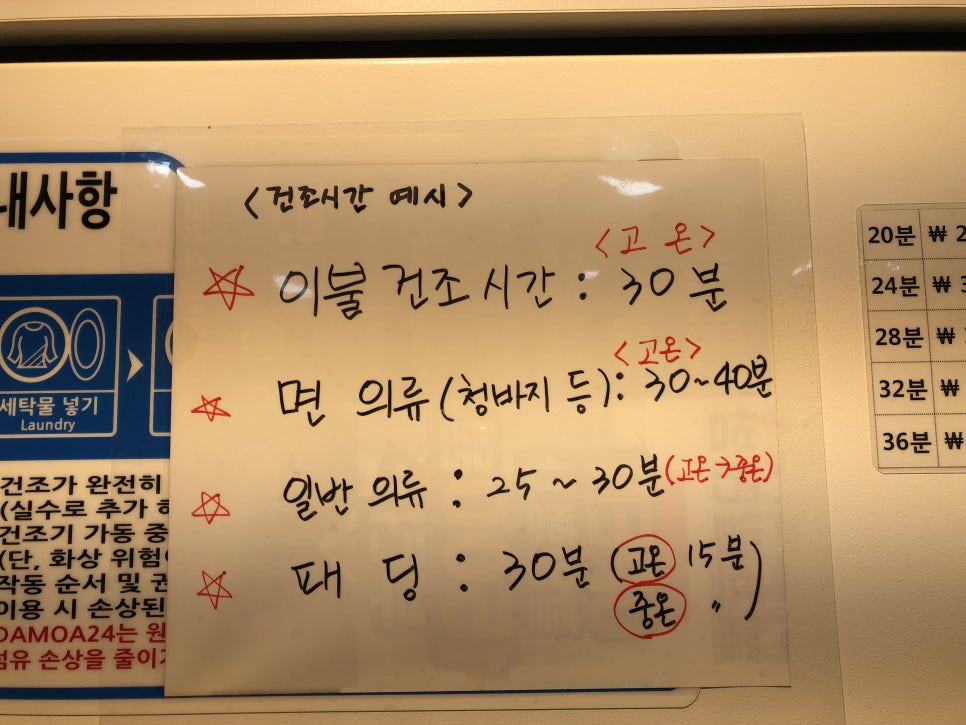 내사항
<건조시간 예시>
<고온>
☆ 이불 건조 시간 : 30분
<고온>
☆ 면 의류(청바지 등): 30~40분
☆ 일반 의류 : 25~30분(고온→중온)
☆ 패딩 : 30분 (고온 15분
중온 〃)
세탁물 넣기
Laundry
건조가 완전히
(실수로 추가
건조기 가동 중
(단, 화상 위험
작동 순서 및
이용 시 손상된
DAMOA24는 원
섬유 손상을 줄이
20분 ₩ 2
24분 ₩ 3
28분 ₩
32분 ₩
36분 ₩